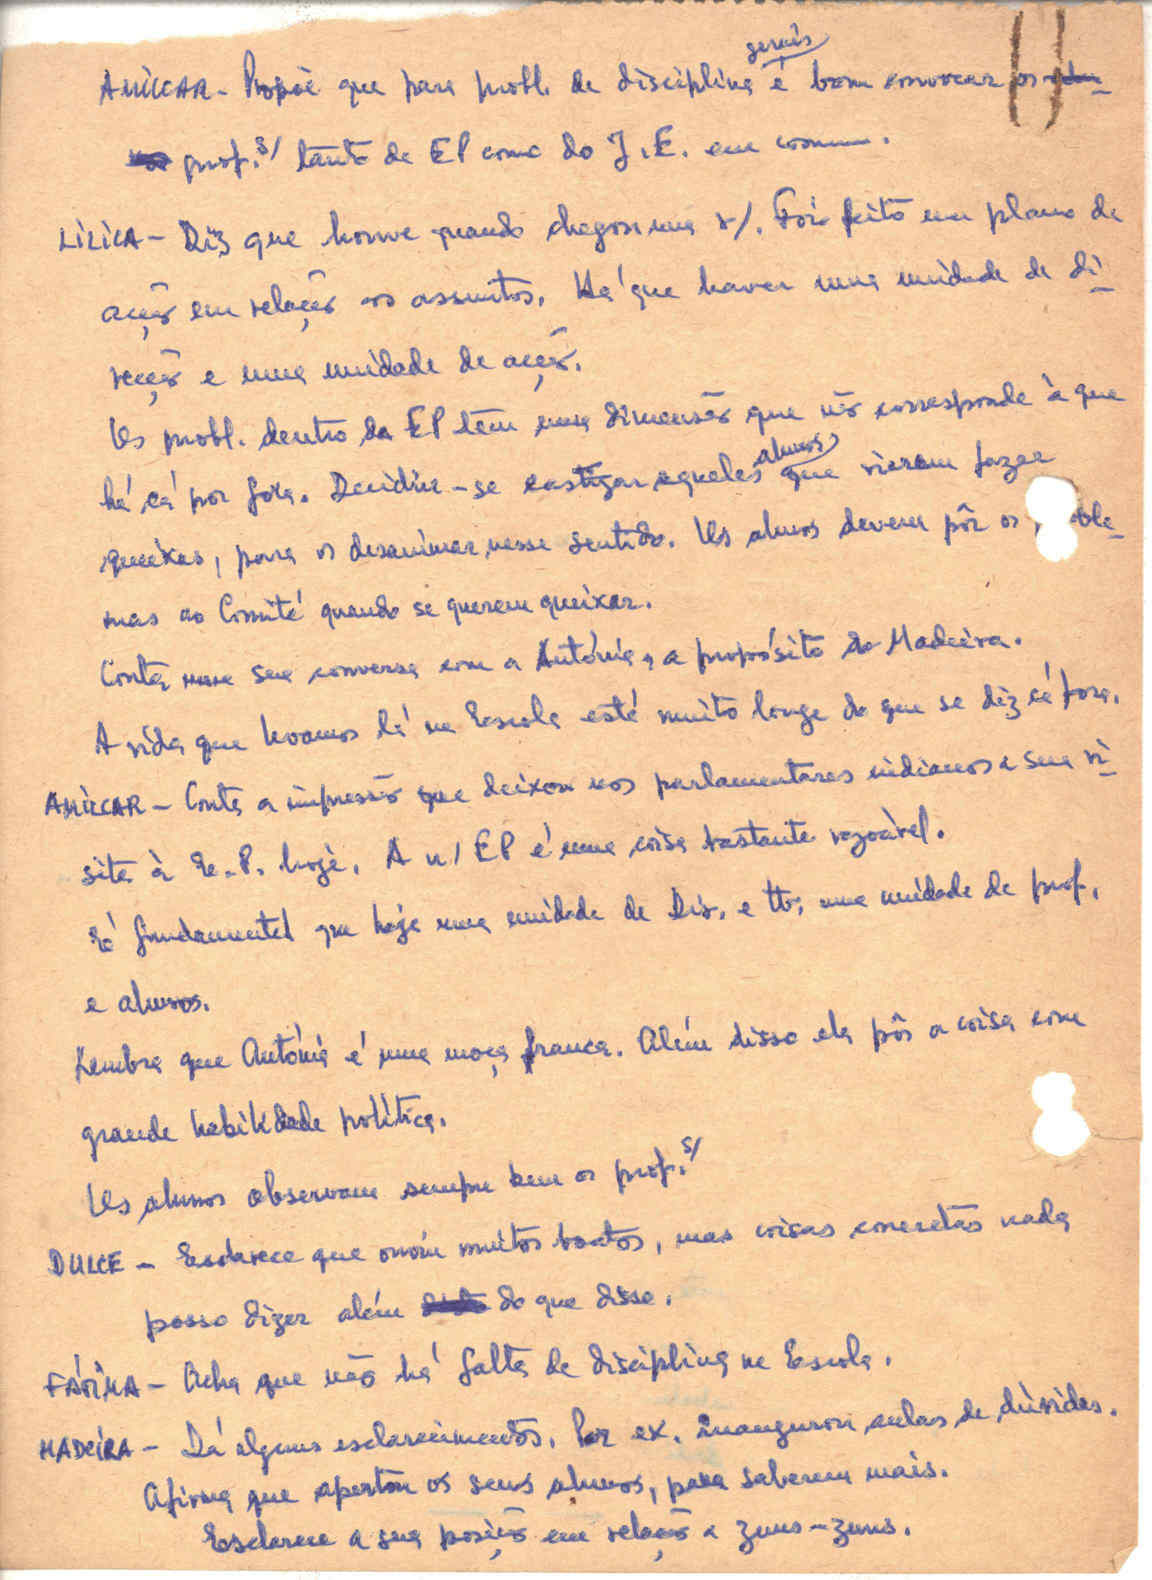 gerais
AMÍLCAR - Propõe que para probl. de disciplina é bom convocar os
prof.s/ tanto da EP como do J.E. em comum.
LILICA - Diz que houve quando chegou uma r/. Foi feito um plano de
acção em relação aos assuntos. Há que haver uma unidade de di-
recção e uma unidade de acção.
Os probl. dentro da EP têm uma dimensão que não corresponde à que
alunos
há cá por fora. Decidiu-se castigar aqueles que vieram fazer
queixas, para os desanimar nesse sentido. Os alunos devem pôr os proble-
mas ao Comité quando se querem queixar.
Conta uma sua conversa com a Antónia, a propósito do Madeira.
A vida que levamos lá na Escola está muito longe do que se diz cá fora.
AMÍLCAR - Conta a impressão que deixou nos parlamentares indianos a sua vi-
sita à E.P. hoje. A n/ EP é uma coisa bastante razoável.
É fundamental que haja uma unidade de Dir. e tb. uma unidade de prof.
e alunos.
Lembra que Antónia é uma moça franca. Além disso ela pôs a coisa com
grande habilidade política.
Os alunos observam sempre bem os prof.s/
DULCE - Esclarece que ouviu muitos boatos, mas coisas concretas nada
posso dizer além do que disse.
FÁTIMA - Acha que não há falta de disciplina na Escola.
MADEIRA - Dá alguns esclarecimentos. Por ex. inaugurou aulas de dúvidas.
Afirma que apertou os seus alunos, para saberem mais.
Esclarece a sua posição em relação a zuns-zuns.